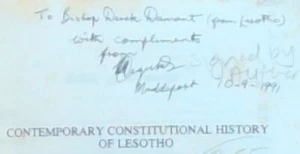 To Bishop Derek Damant (from Lesotho)
with compliments
from
Signed by
Author
Maddeport 10-9-1991
CONTEMPORARY CONSTITUTIONAL HISTORY
OF LESOTHO